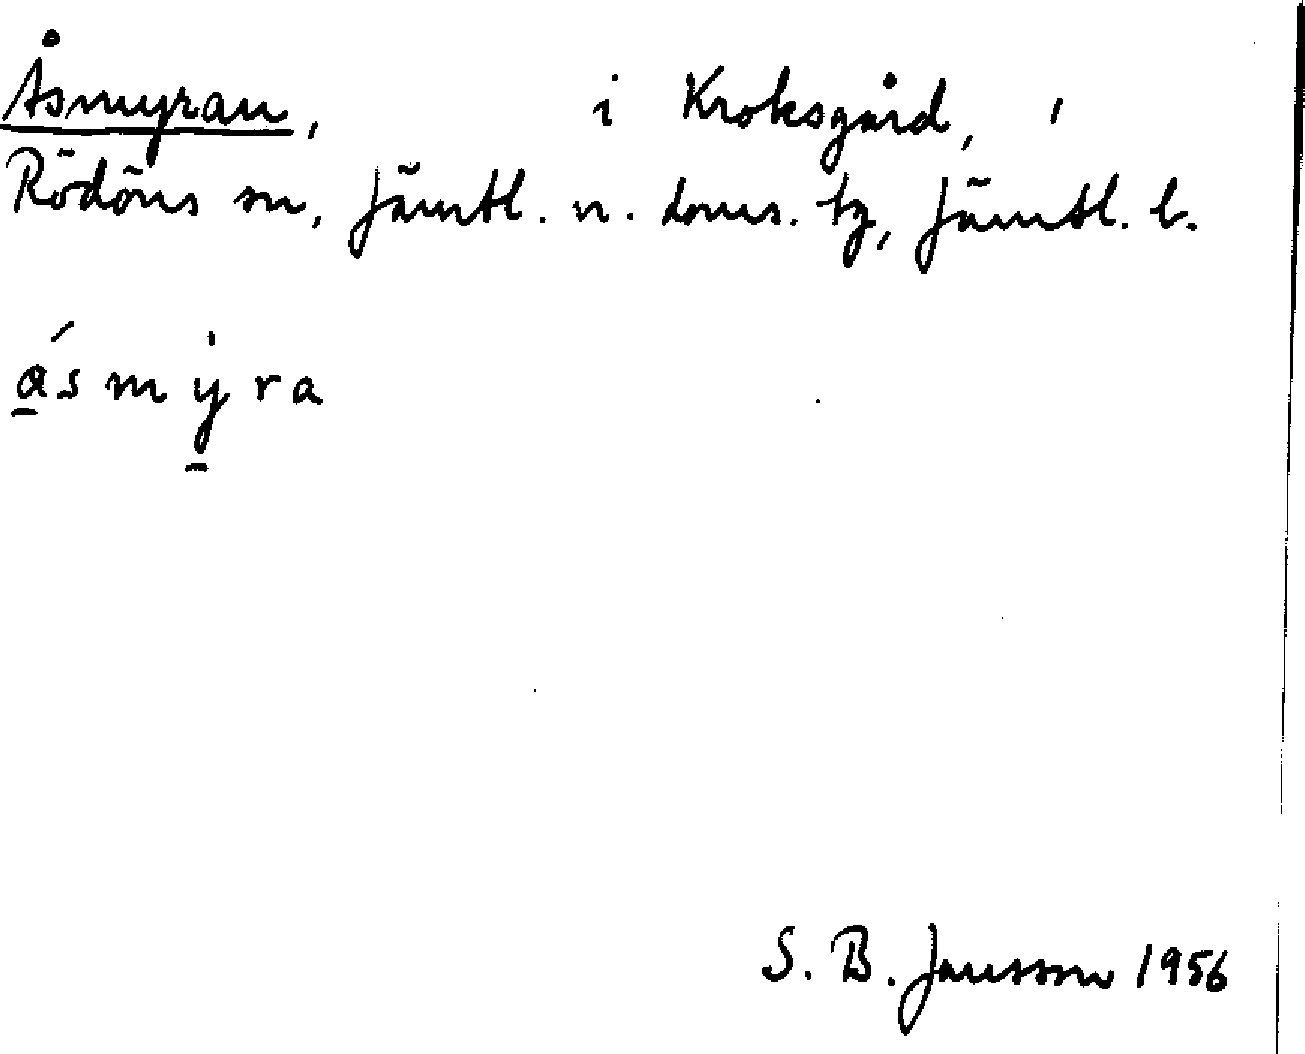 Åsmyran, i Kroksgård, i
Rödöns sn, Jämtl. n. doms. tg, Jämtl. l.
á̲s m y̲̍ r a
S. B. Jansson 1956